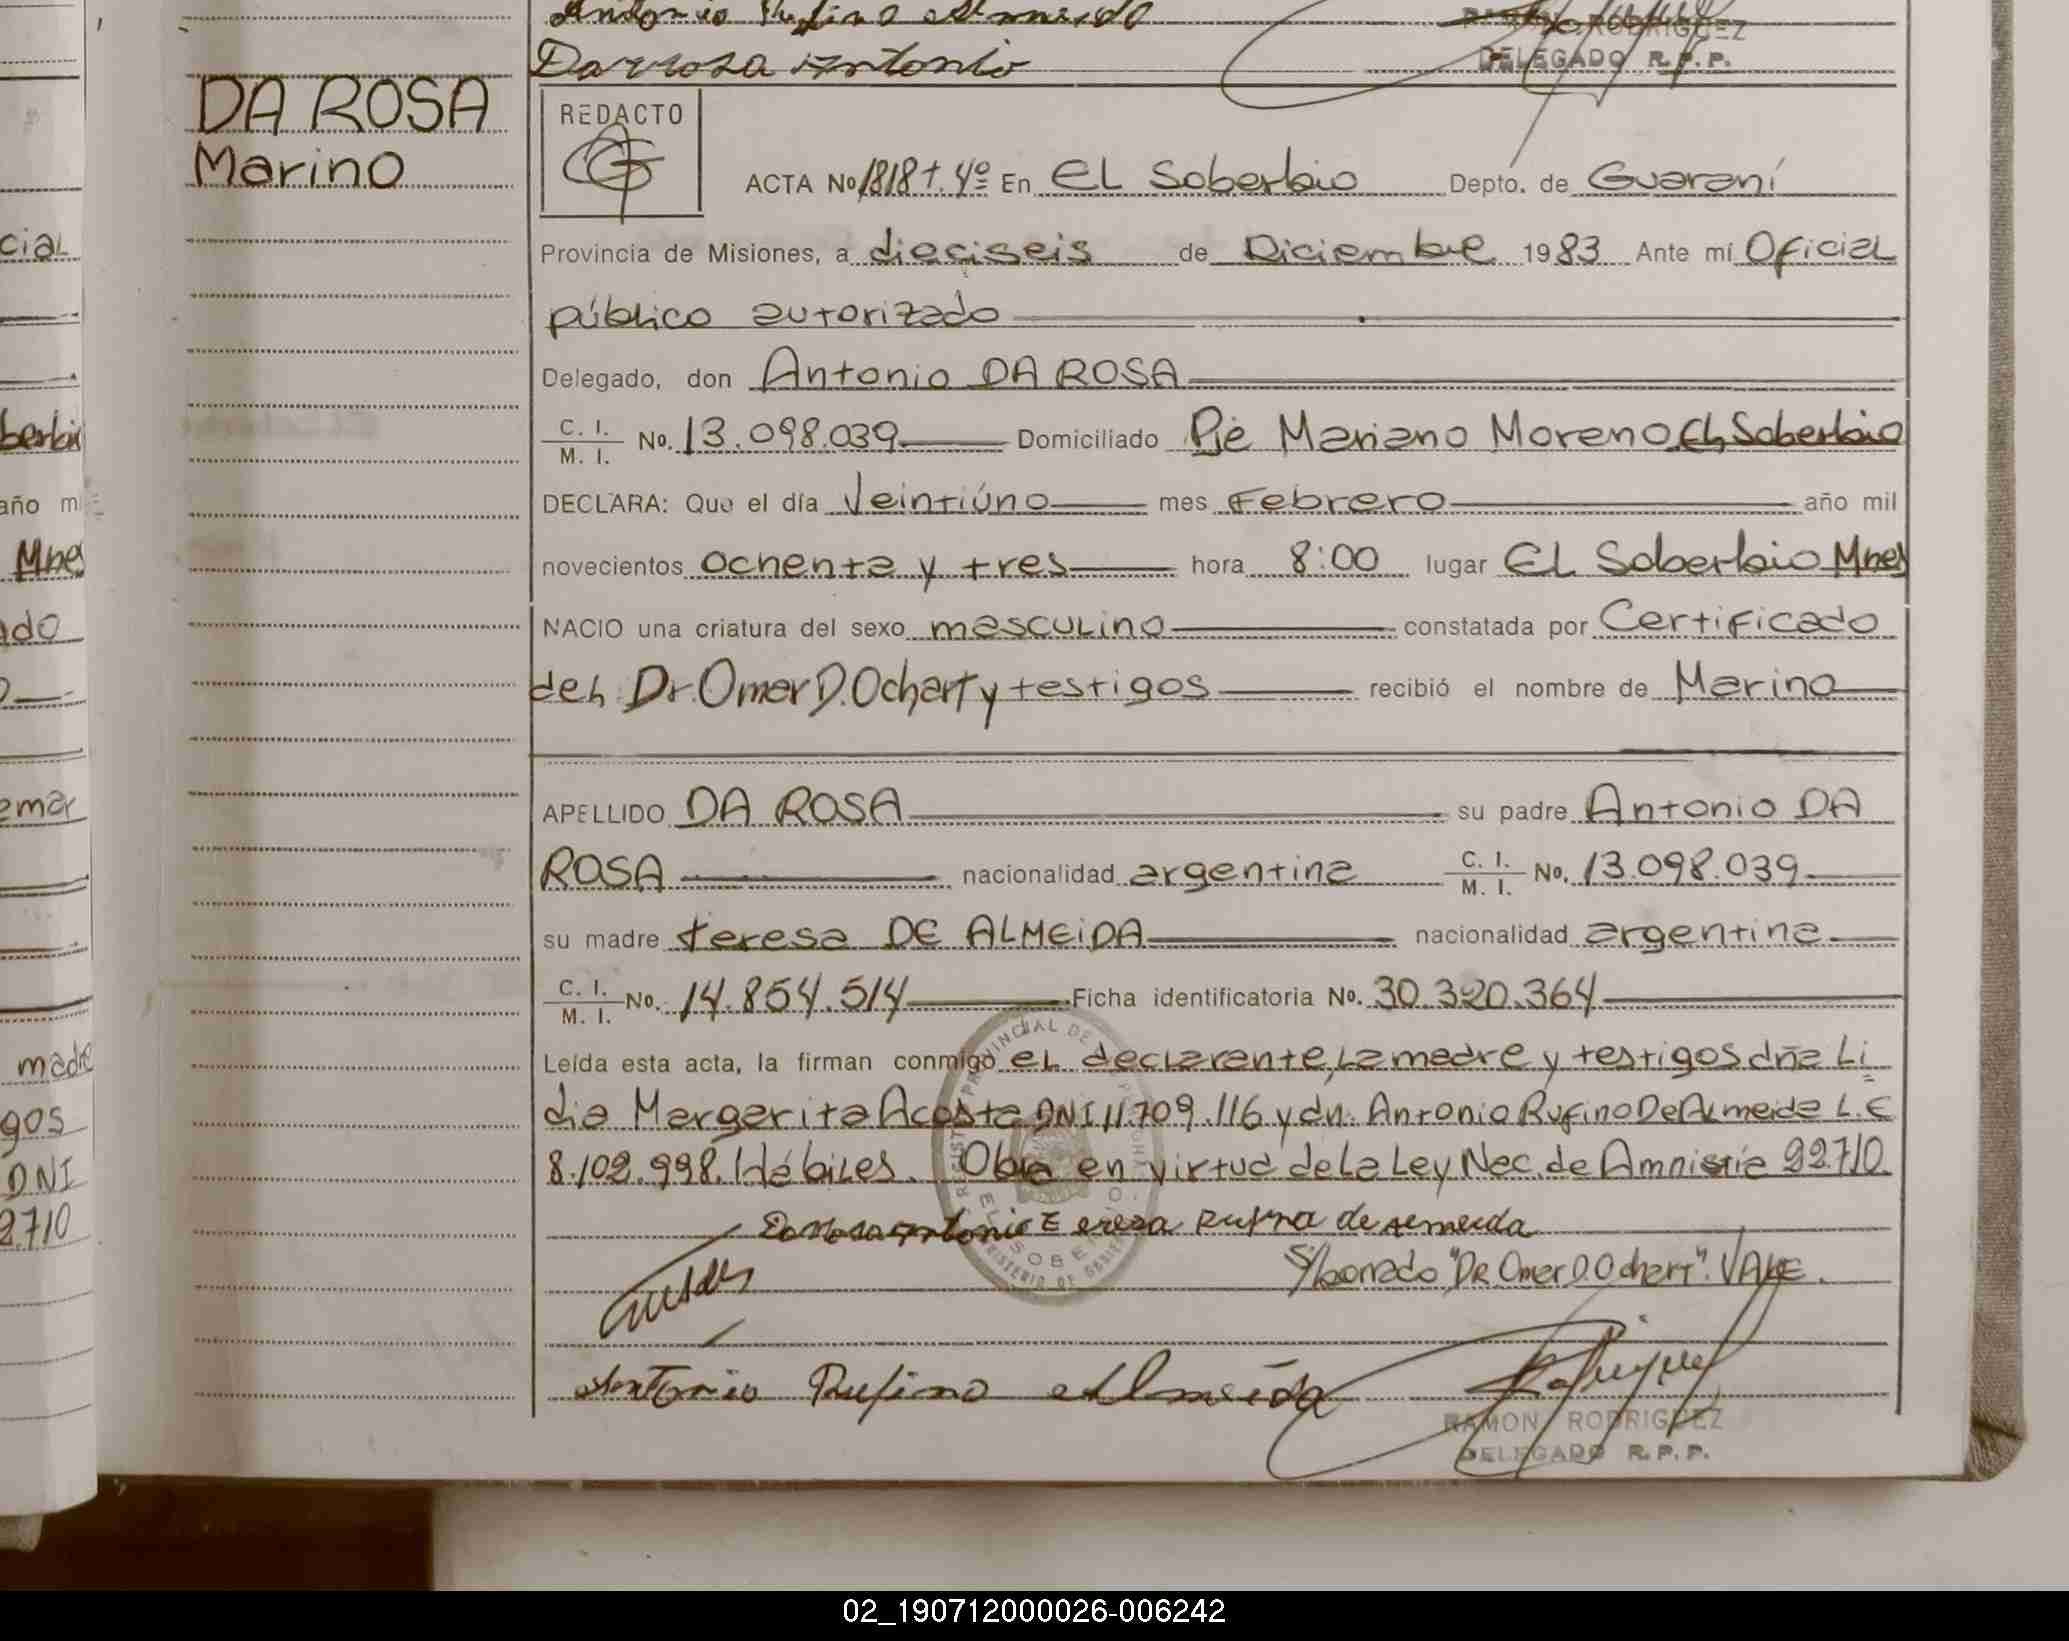 Antonio Rufino Almeida
Darrosa Antonio
RAMON RODRIGUEZ
DELEGADO R.P.P.
DA ROSA
Marino
REDACTO
ACTA No 1818 t. 4º En El Soberbio Depto. de Guaraní
Provincia de Misiones, a dieciseis de Diciembre 1983 Ante mí Oficial
público autorizado
Delegado, don Antonio DA ROSA
C. I.
M. I. No. 13.098.039 Domiciliado Pje Mariano Moreno El Soberbio
DECLARA: Que el día Veintiúno mes Febrero año mil
novecientos ochenta y tres hora 8:00 lugar El Soberbio Mnes
NACIO una criatura del sexo masculino constatada por Certificado
del Dr. Omer D. Ochart y testigos recibió el nombre de Marino
APELLIDO DA ROSA su padre Antonio DA
ROSA nacionalidad argentina C. I.
M. I. No. 13.098.039
su madre teresa DE ALMEiDA nacionalidad argentina
C. I.
M. I. No. 14.854.514 Ficha identificatoria No. 30.320.364
Leída esta acta, la firman conmigo el declarante, la madre y testigos dña Li
dia Margarita Acosta DNI 11.709.116 y dn. Antonio Rufino De Almeida L.E
8.102.998. Hábiles. Obra en virtud de la Ley Nac. de Amnistía 22.710
Darrosa Antonio Tereza Rufina de Almeida
S/borrado "Dr. Omer D. Ochart". VALE.
Antonio Rufino Almeida
RAMON RODRIGUEZ
DELEGADO R.P.P.
cial
berbio
año mi
Mnes
ado
madre
gos
DNI
2.710
02_190712000026-006242